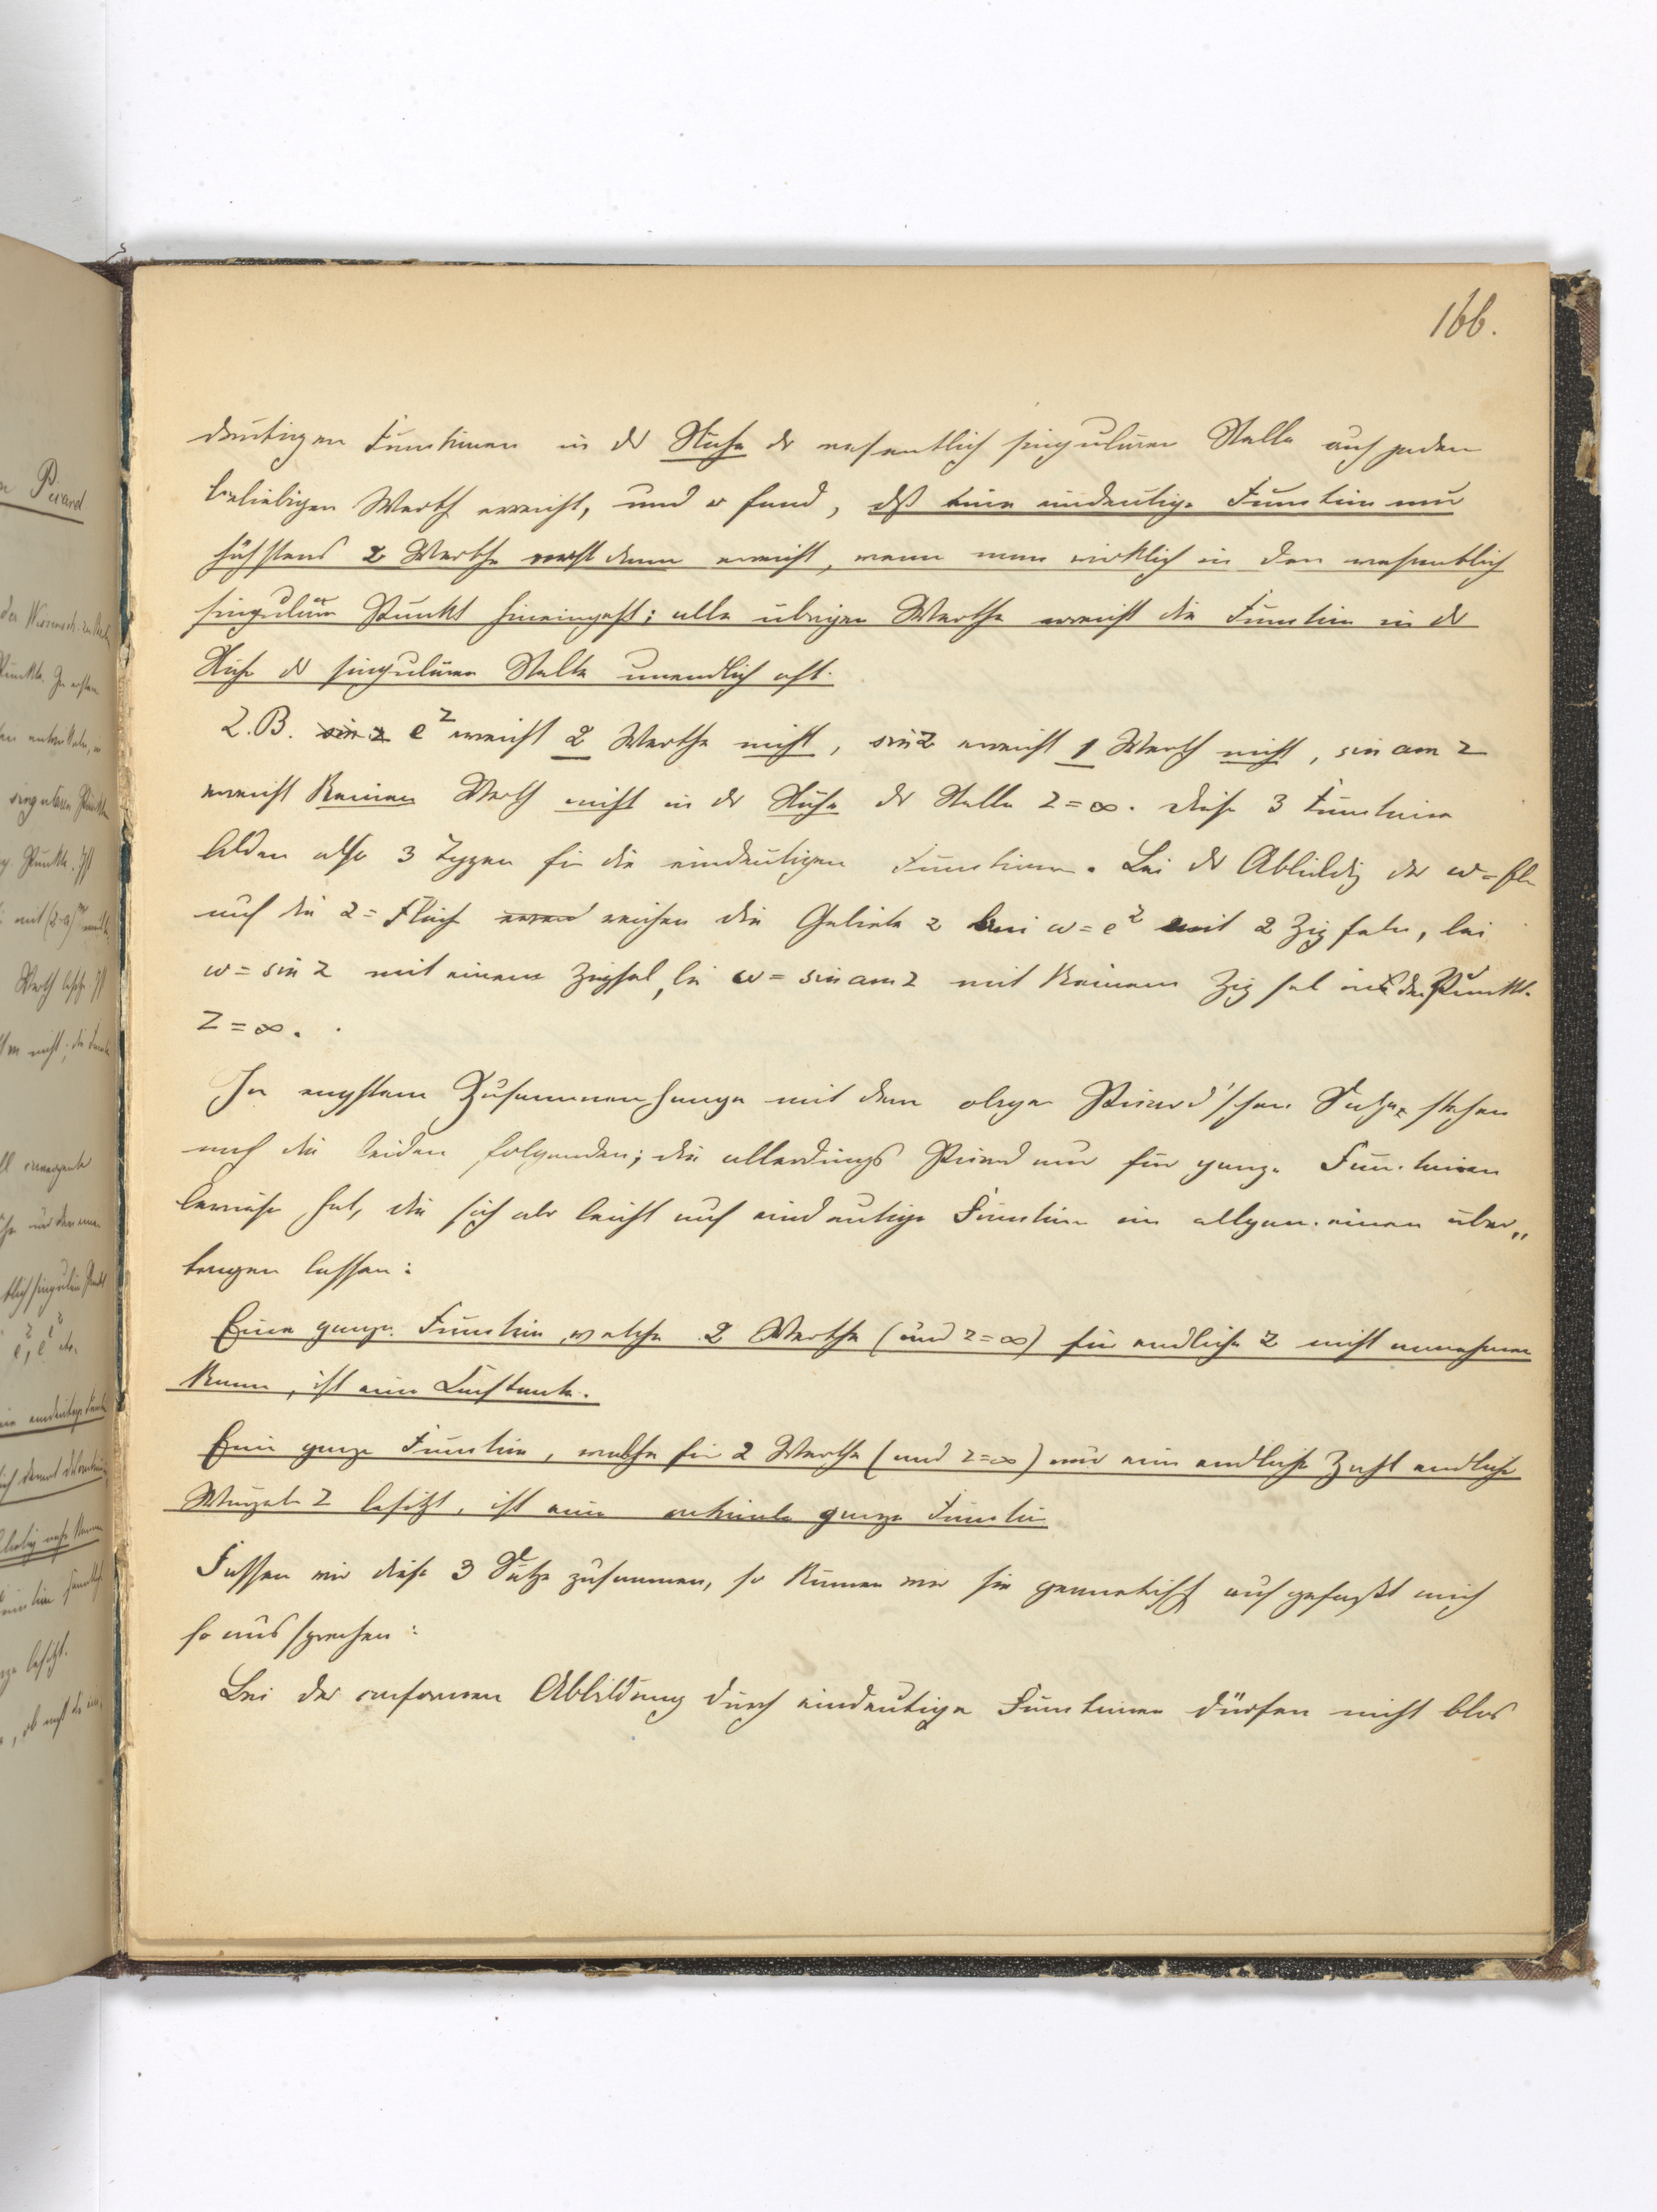 166.
deutigen Functionen in der Nähe der wesentlich singulären Stelle auch jeden
beliebigen Werth erreicht, und er fand, daß eine eindeutige Function nur
höchstens 2 Werthe erst dann erreicht, wenn man wirklich in den wesentlich
singulären Punkt hineingeht; alle übrigen Werthe erreicht die Function in der
Nähe der singulären Stelle unendlich oft.
Z.B. sin z e^z erreicht 2 Werthe nicht, sin z erreicht 1 Werth nicht, sin am z
erreicht keinen Werth nicht in der Nähe der Stelle z = ∞. Diese 3 Functionen
bilden also 3 Typen für die eindeutigen Functionen. Bei der Abbildg der w = Fl
auf die z = Fläche reichen die Gebiete z bei w = e^z mit 2 Zipfeln, bei
w = sin z mit einem Zipfel, bei w = sin am z mit keinem Zipfel in den Punkt
z = ∞.
In engstem Zusammenhange mit dem obigen Picard'schen Satze stehen
noch die beiden folgenden; die allerdings Picard nur für ganze Functionen
bewiesen hat, die sich aber leicht auf eindeutige Function im allgemeinen über„
tragen lassen:
Eine ganze Function, welche 2 Werthe (und z = ∞) für endliche z nicht annehmen
kann, ist eine Constante.
Eine ganze Function, welche für 2 Werthe (und z = ∞) nur eine endliche Zahl endliche
Wurzeln z besitzt, ist eine rationale ganze Function
Fassen wir diese 3 Sätze zusammen, so können wir sie geometrisch aufgefaßt auch
so aussprechen:
Bei der conformen Abbildung durch eindeutige Functionen dürfen nicht blos